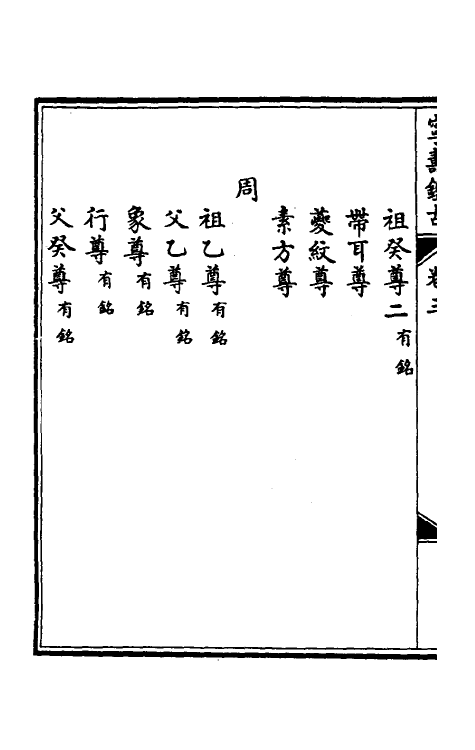 祖癸尊二有銘
帶耳尊
夔紋尊
素方尊
周
祖乙尊有銘
父乙尊有銘
象尊有銘
行尊有銘
父癸尊有銘